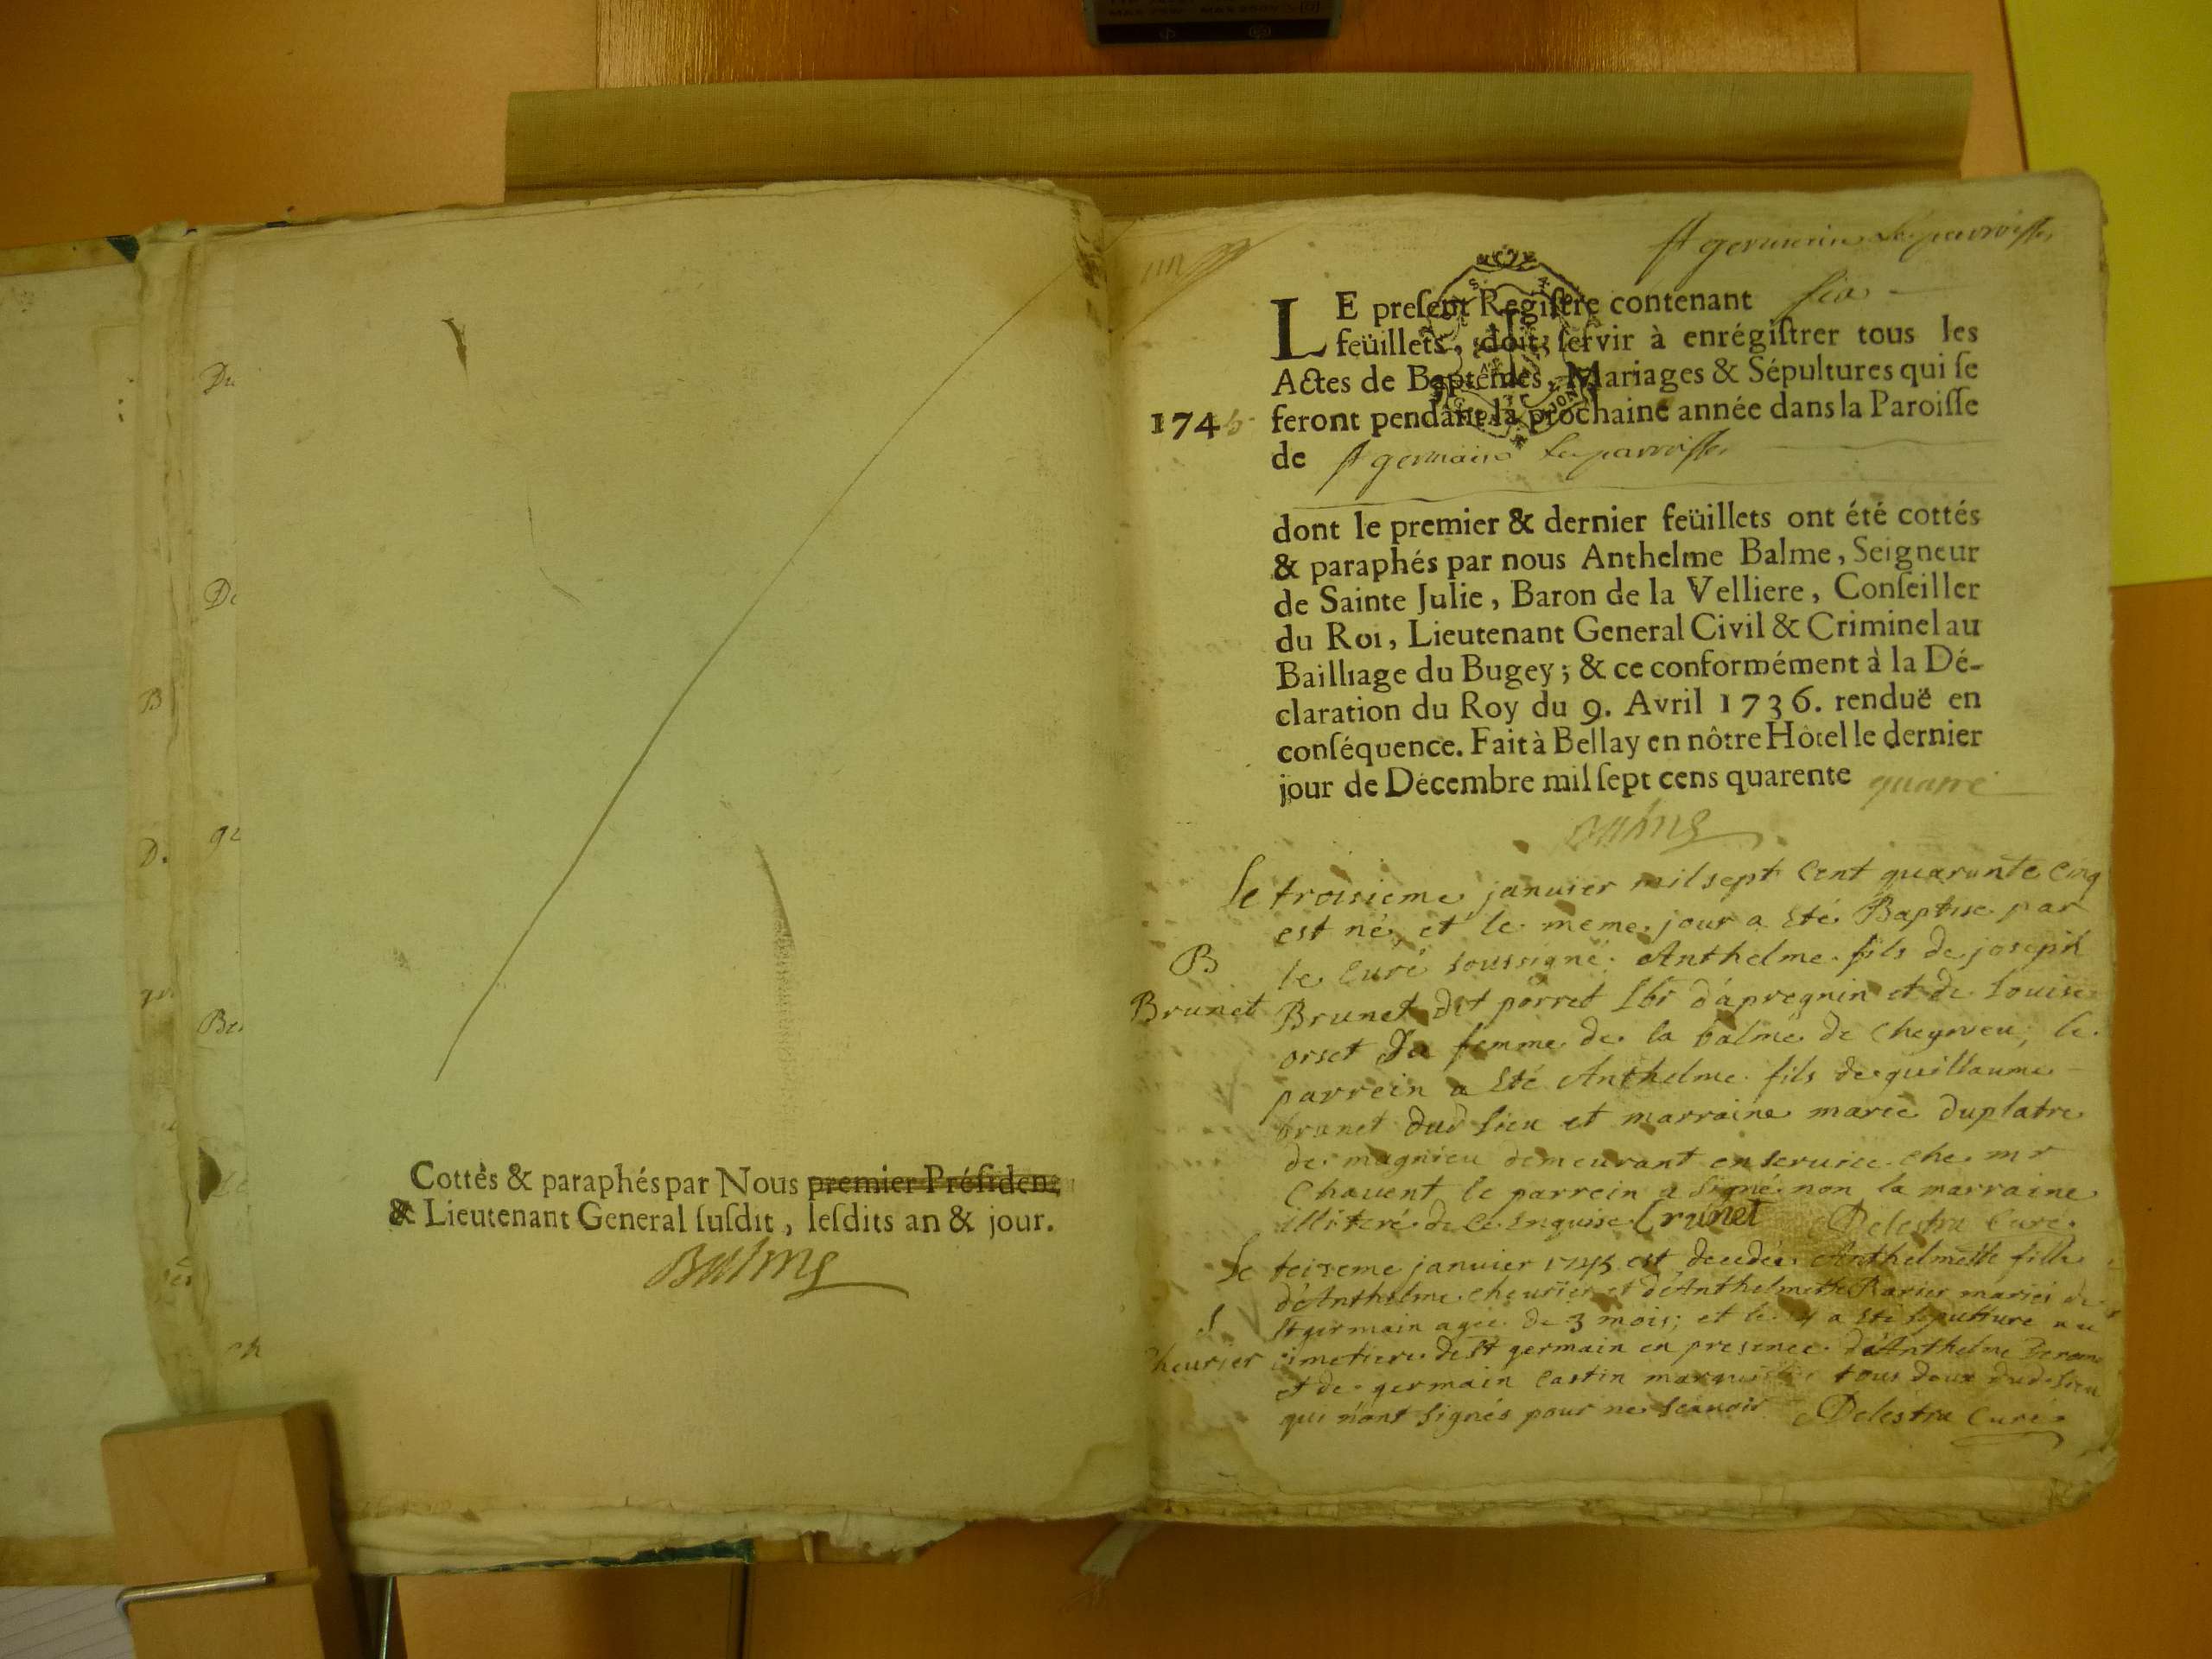 Cottés & paraphés par Nous premier Présiden
& Lieutenant General ſuſdit, leſdits an & jour.
Balme
st germain les parroisse
LE preſent Regiſtre contenant six
feüillets, doit ſervir à enrégiſtrer tous les
Actes de Baptêmes, Mariages & Sépultures qui ſe
1745 feront pendant la prochaine année dans la Paroiſſe
de st germain les parroisse
dont le premier & dernier feüillets ont été cottés
& paraphés par nous Anthelme Balme, Seigneur
de Sainte Julie, Baron de la Velliere, Conſeiller
du Roi, Lieutenant General Civil & Criminel au
Bailliage du Bugey; & ce conformément à la Dé-
claration du Roy du 9. Avril 1736. renduë en
conſéquence. Fait à Bellay en nôtre Hôtel le dernier
jour de Décembre mil ſept cens quarente quatre
Balme
le troisieme janvier mil sept cent quarante cinq
est né et le meme jour a été Baptise par
B le curé soussigné Anthelme fils de joseph
Brunet Brunet dit porret lbr d'apregnin et de louise
orset sa femme de la balme de cheynieu, le
parrein a été Anthelme fils de guillaume
brunet dud lieu et marraine marie duplatre
de magnieu demeurant en service che mr
Chauent le parrein a signé non la marraine
illiteré de ce enquise Brunet Delestra Curé
le treizeme janvier 1745 est decedée Anthelmette fille
d'Anthelme cheurier et d'Anthelmette mariés de
S st germain agée de 3 mois; et le a été sepulture au
cheurier cimetiere de st germain en presence d'Anthelme
et de germain castin tous deux dud lieu
qui n'ont signés pour ne scavoir Delestra Curé